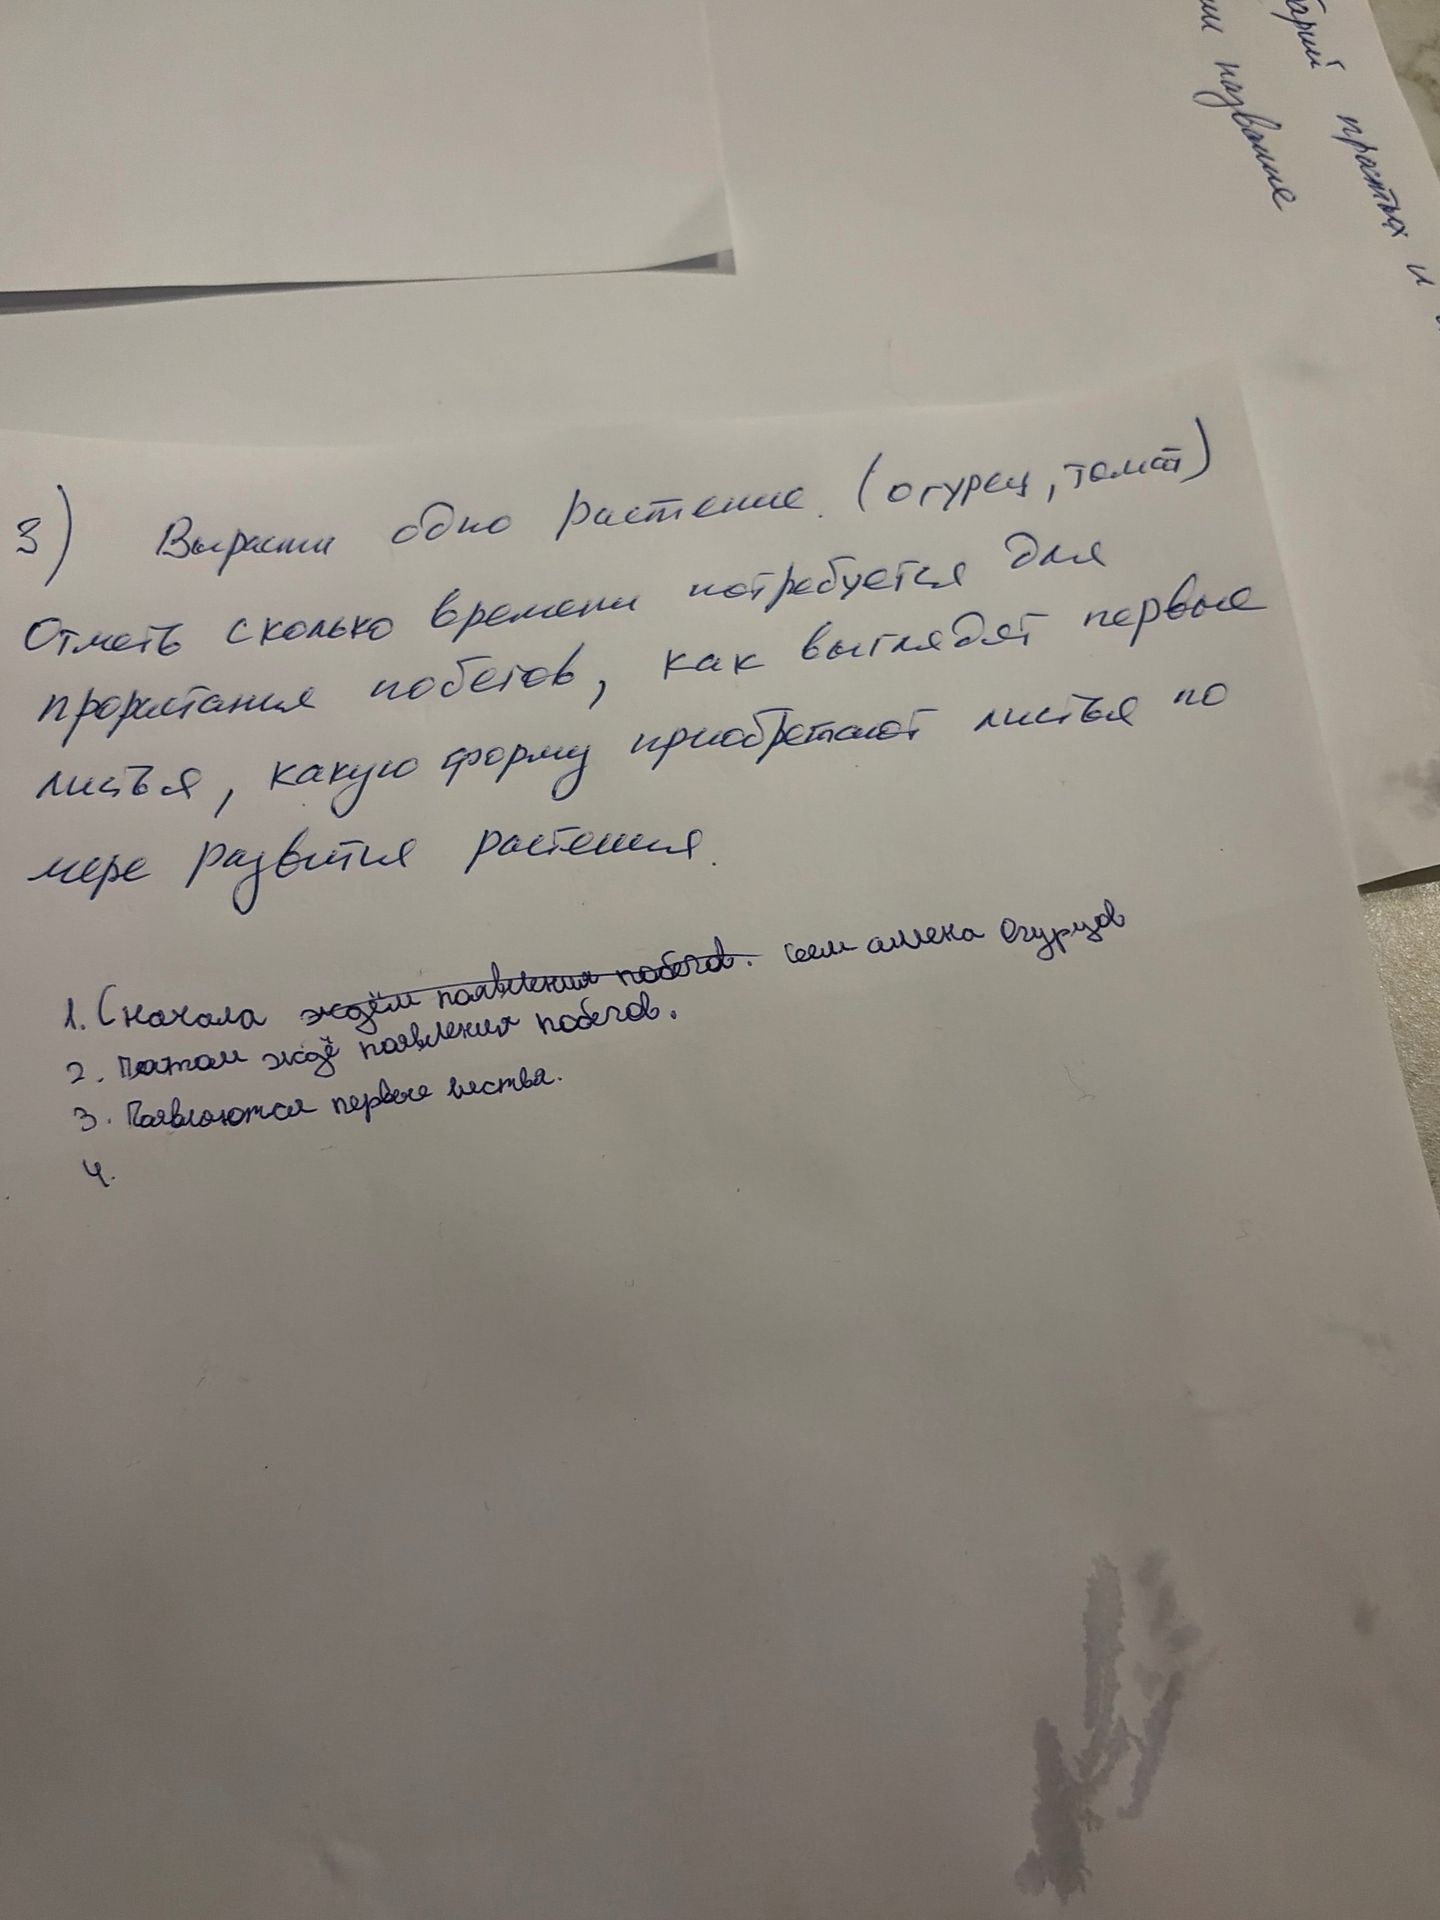 практых и
ии название
3) Вырасти одно растение. (огурец, томат)
Отметь сколько времени потребуется для
прорастания побегов, как выглядят первые
листья, какую форму приобретают листья по
мере развития растения.
1. Сначала ждём появления побегов. сеем семена Огурцов
2. Потом ждё появления побегов.
3. Появляются первые листья.
4.